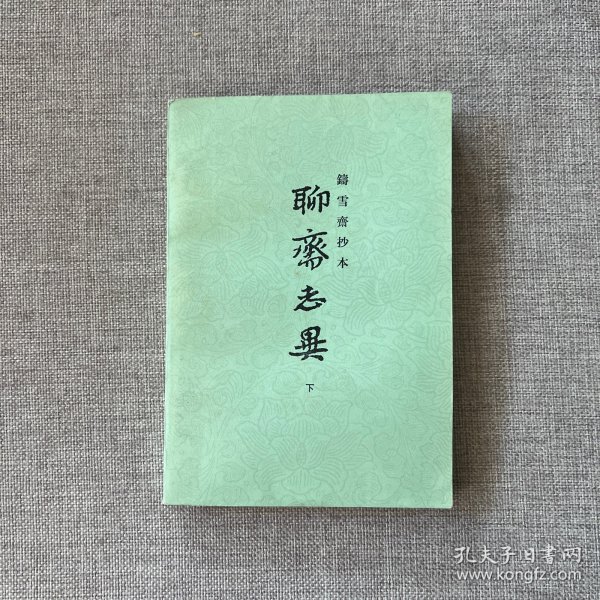 鑄雪齋抄本
聊齋志異
下
孔夫子旧書网
www.kongfz.com